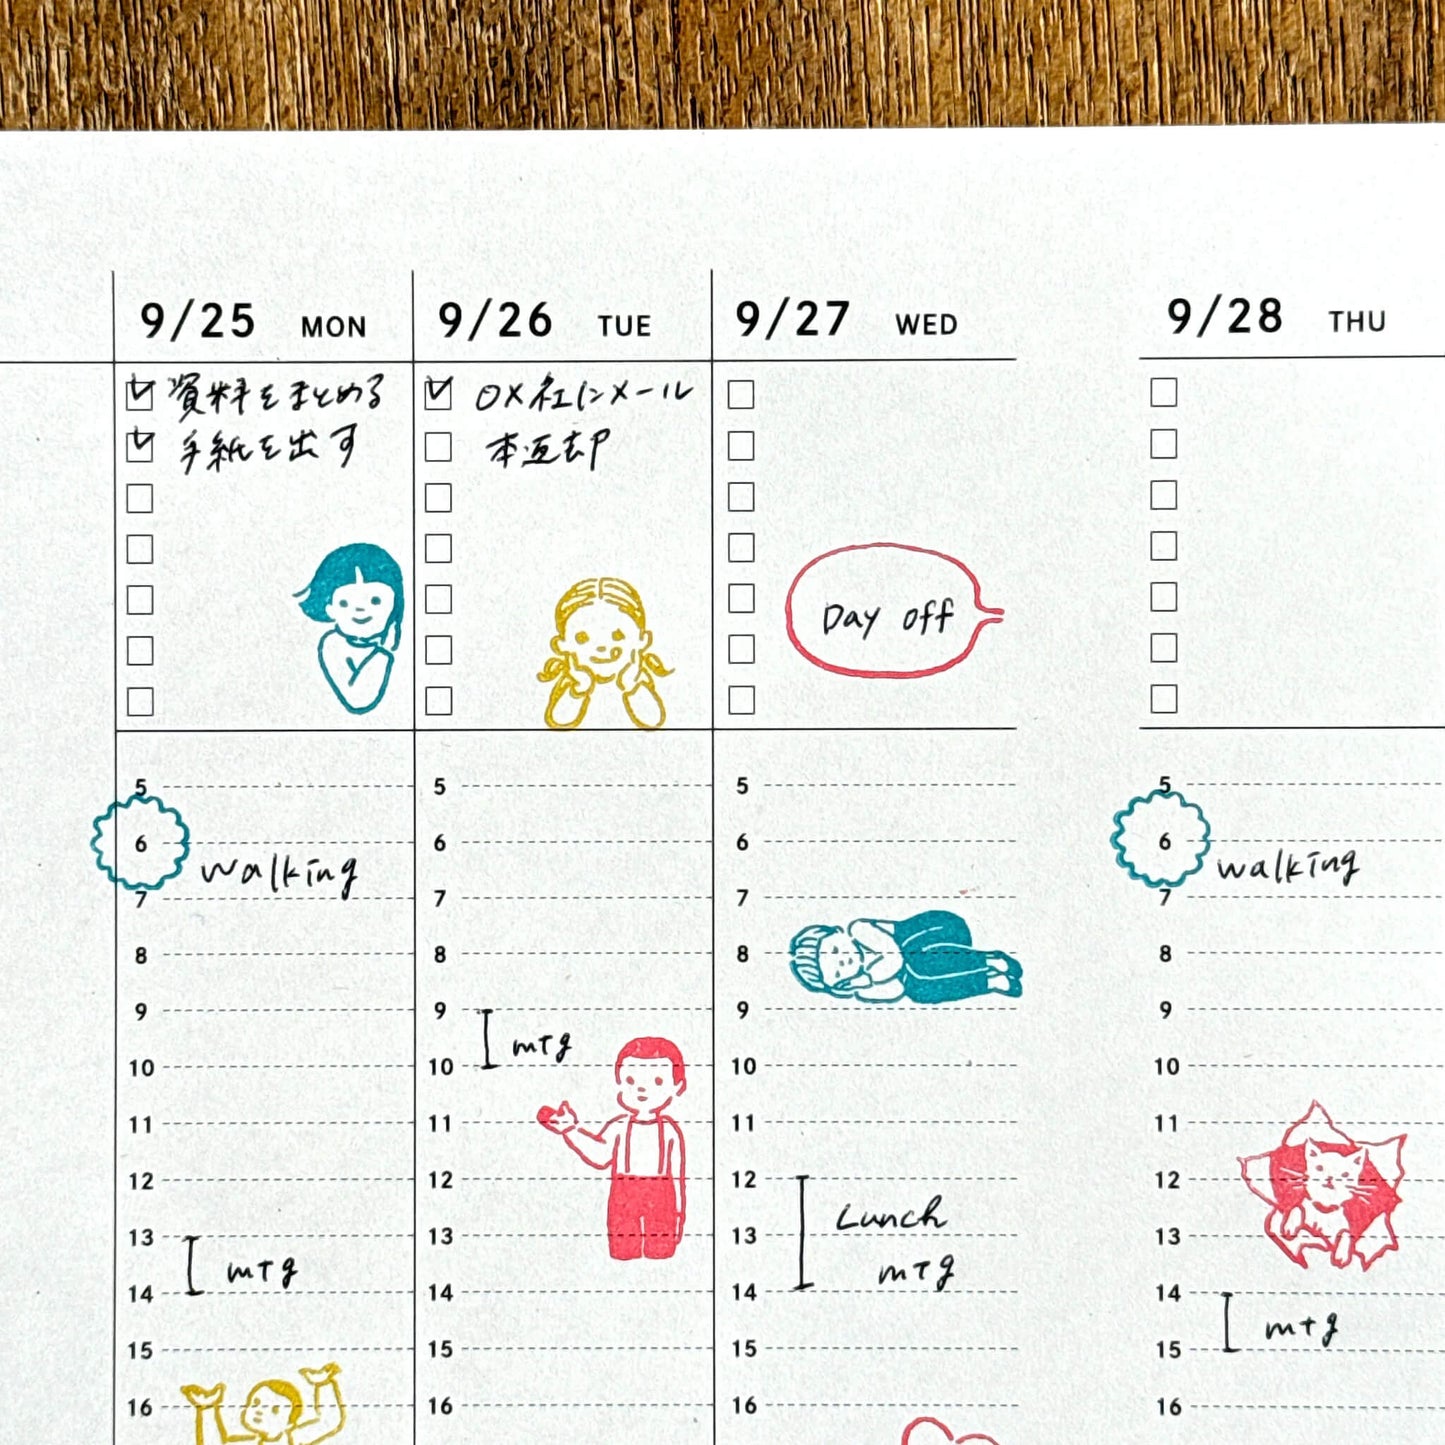 9/25 MON
資料をまとめる
手紙を出す
5
6
walking
7
8
9
10
11
12
13
mtg
14
15
16
9/26 TUE
○×社にメール
本返却
5
6
7
8
9
mtg
10
11
12
13
14
15
16
9/27 WED
Day off
5
6
7
8
9
10
11
12
Lunch
13
mtg
14
15
16
9/28 THU
5
6
walking
7
8
9
10
11
12
13
14
mtg
15
16